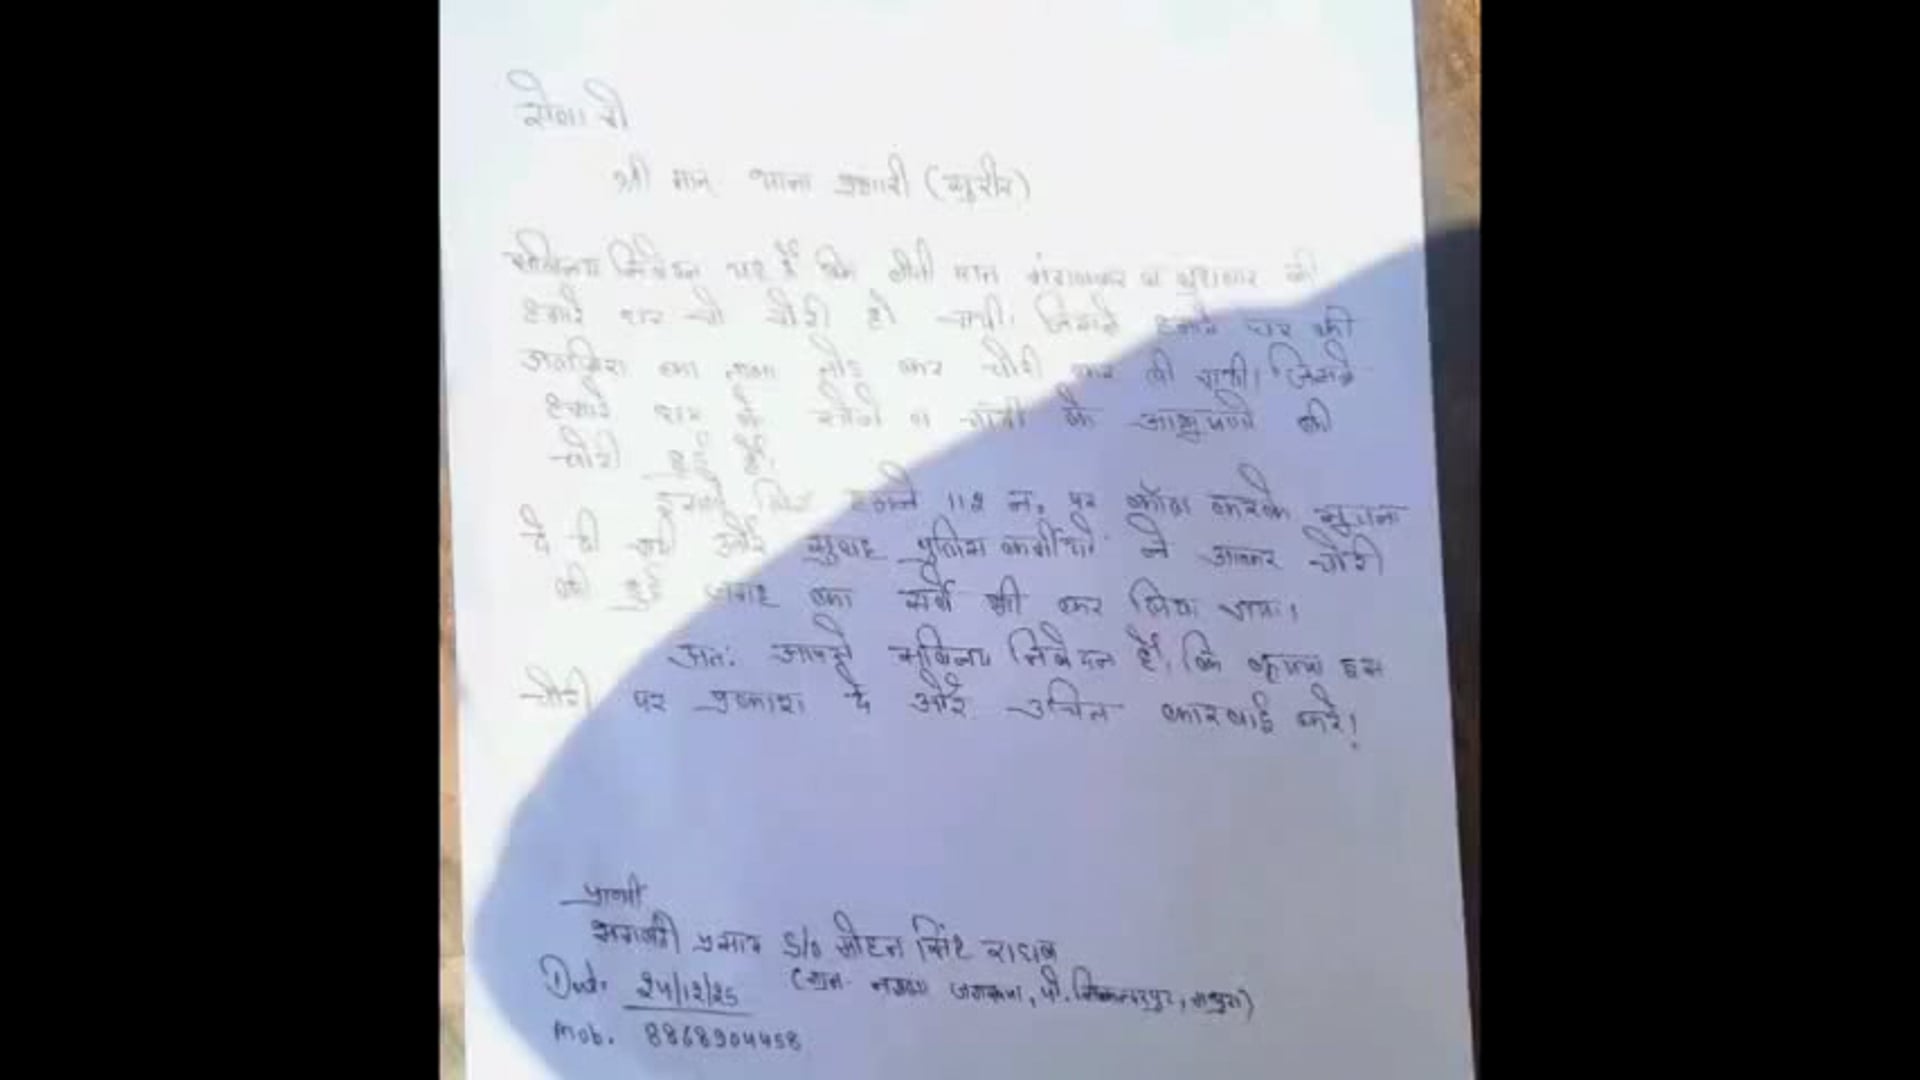 सेवा में
श्री मान थाना प्रभारी (सुरीर)
सविनय निवेदन यह है कि बीती रात मंगलवार व बुधवार की
हमारे घर में चोरी हो गयी। जिसमें हमारे घर की
का ताला तोड़ कर चोरी कर ली गयी। जिसमें
हमारे घर के सोने व चांदी के आभुषणों की
चोरी हुई है।
हमने 112 न. पर कॉल करके सूचना
दे दी गयी और सुबह पुलिस कर्मीयों ने आकर चोरी
की हुई जगह का सर्वे भी कर लिया गया।
अतः आपसे सविनय निवेदन है, कि कृपया इस
चोरी पर प्रकाश दे और उचित कारवाई करे!
प्रार्थी
प्रसाद S/o मोहन सिंह राघव
Date 24/12/25 (ग्राम- नगला पो. सिकन्दरपुर, मथुरा)
Mob. 8868904458